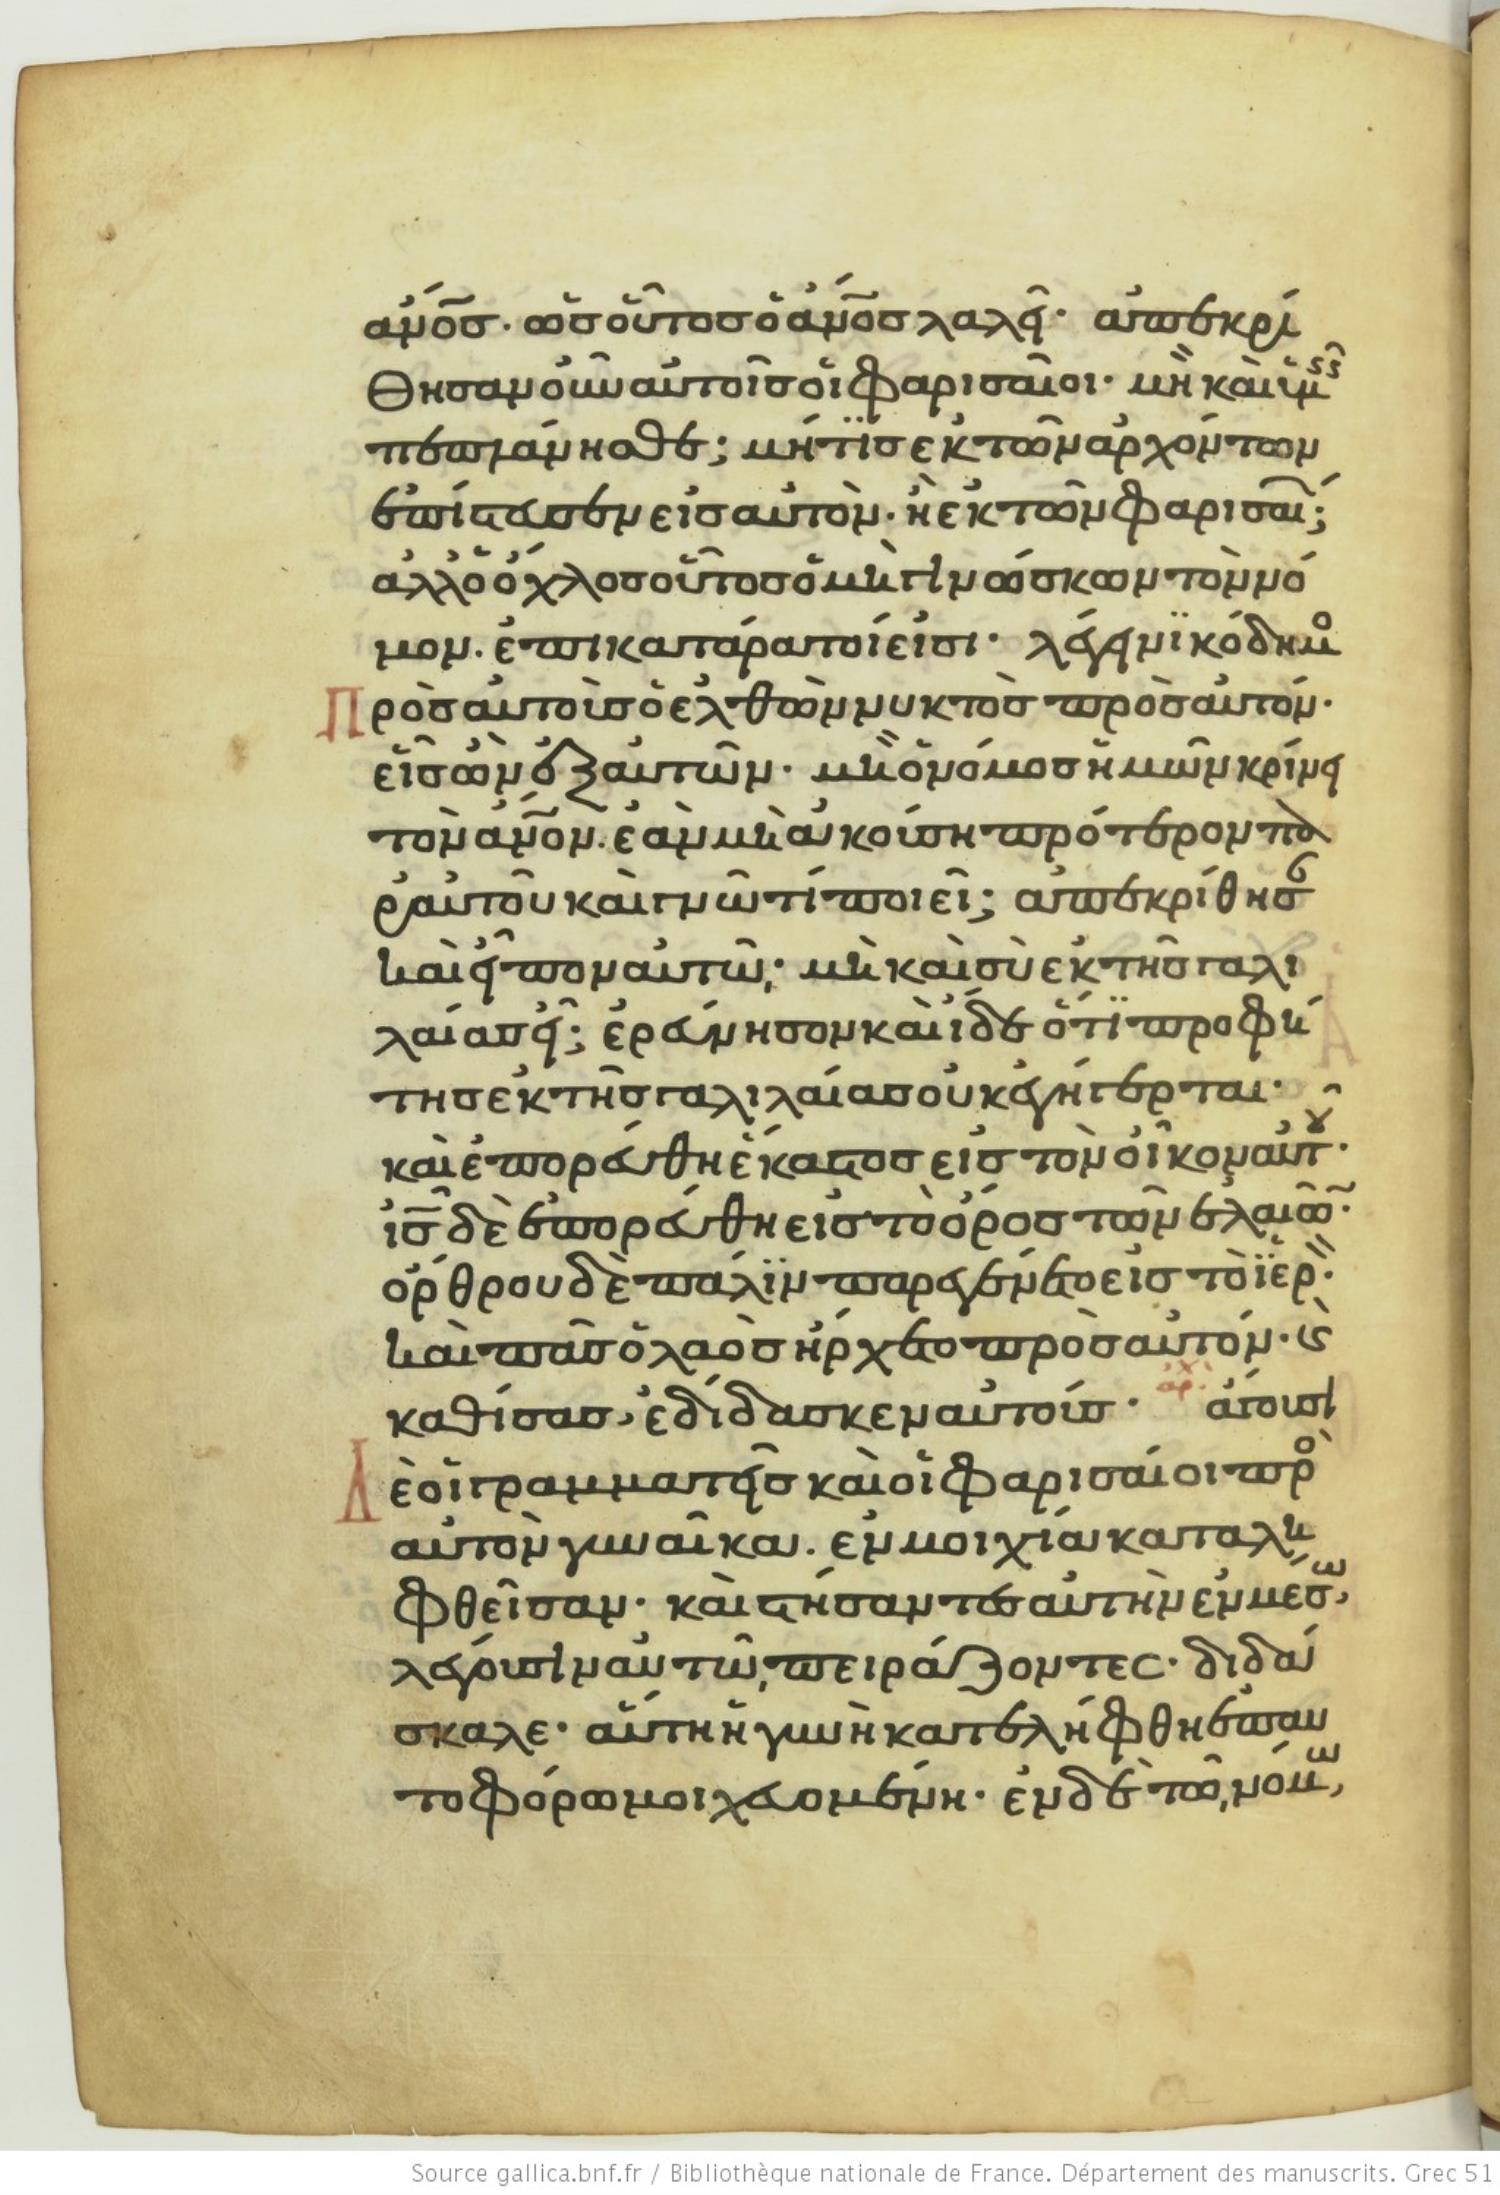 ἄν̅ο̅σ̅. ὡσ οὗτοσ ὁ ἄν̅ο̅σ̅ λαλεῖ· ἀπεκρί
θησαν οὖν αὐτοῖσ οἱ φαρισαῖοι· μὴ καὶ ὑμεῖσ
πεπλάνησθε; μή τϊσ ἐκ τῶν ἀρχόντων
ἐπίστευσεν εἰσ αὐτὸν. ἢ ἐκ τῶν φαρισαί;
ἀλλ ὁ ὄχλοσ οὗτοσ ὁ μὴ γινώσκων τὸν νό
μον. ἐπικατάρατοί εἰσι· λέγει νϊκόδημο
Πρὸσ αὐτοὺσ ὁ ἐλθὼν νυκτὸσ πρὸσ αὐτόν·
εἷσ ὢν ἐξ αὐτῶν· μὴ ὁ νόμοσ ἡμῶν κρίνει
τὸν ἄν̅ο̅ν̅. ἐὰν μὴ ἀκούση πρότερον πα
ρ αὐτοῦ καὶ γνῶ τί ποιεῖ; ἀπεκρίθησ
καὶ εἶπον αὐτῶ; μὴ καὶ σὺ ἐκ τῆσ γαλι
λαίασ εἶ; ἐρεύνησον καὶ ἴδε ὅτϊ προφή
τησ ἐκ τῆσ γαλιλαίασ οὐκ ἐγήγερται·
καὶ ἐπορεύθη ἕκαστοσ εἰσ τὸν οἶκον αὐτοῦ·
ι̅σ̅ δὲ ἐπορεύθη εἰσ τὸ ὄροσ τῶν ἐλαιῶ·
ὄρθρου δὲ πάλϊν παρεγένετο εἰσ τὸ ϊερ·
καὶ πᾶσ ὁ λαὸσ ἤρχετο πρὸσ αὐτόν· ϗ
καθίσασ, ἐδίδασκεν αὐτούσ· ἀρχ ἄγουσι
Δὲ οἱ γραμματεῖσ καὶ οἱ φαρισαίοι πρὸ
αὐτὸν γυναῖκα. ἐν μοιχία καταλη
φθεῖσαν· καὶ στήσαντεσ αὐτὴν ἐν μέσω,
λέγουσιν αὐτῶ, πειράζοντες· διδά
σκαλε· αὕτη ἡ γυνὴ κατελήφθη ἐπαυ
τοφόρω μοιχευομένη· ἐν δὲ τῶ, νόμω,
Source gallica.bnf.fr / Bibliothèque nationale de France. Département des manuscrits. Grec 51